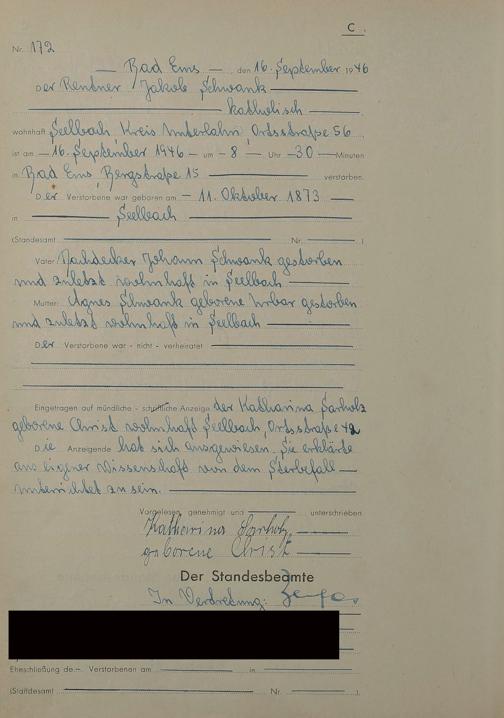 C.
Nr. 172
Bad Ems den 16. September 1946
Der Rentner Jakob Schwank
katholisch
wohnhaft Seelbach, Kreis Unterlahn, Ortsstraße 56
ist am 16. September 1946 um 8 Uhr 30 Minuten
in Bad Ems, Bergstraße 15 verstorben.
Der Verstorbene war geboren am 11. Oktober 1873
in Seelbach
(Standesamt Nr. )
Vater: Dachdecker Johann Schwank gestorben
und zuletzt wohnhaft in Seelbach
Mutter: Agnes Schwank geborene Urbar gestorben
und zuletzt wohnhaft in Seelbach
Der Verstorbene war - nicht - verheiratet
Eingetragen auf mündliche - schriftliche Anzeige der Katharina Sarholz
geborene Christ wohnhaft Seelbach, Ortsstraße 42
Die Anzeigende hat sich ausgewiesen. Sie erklärte
aus eigener Wissenschaft von dem Sterbefall
unterrichtet zu sein.
Vorgelesen, genehmigt und unterschrieben
Katharina Sarholz
geborene Christ
Der Standesbeamte
In Vertretung:
Eheschließung de Verstorbenen am in
(Standesamt Nr. ).